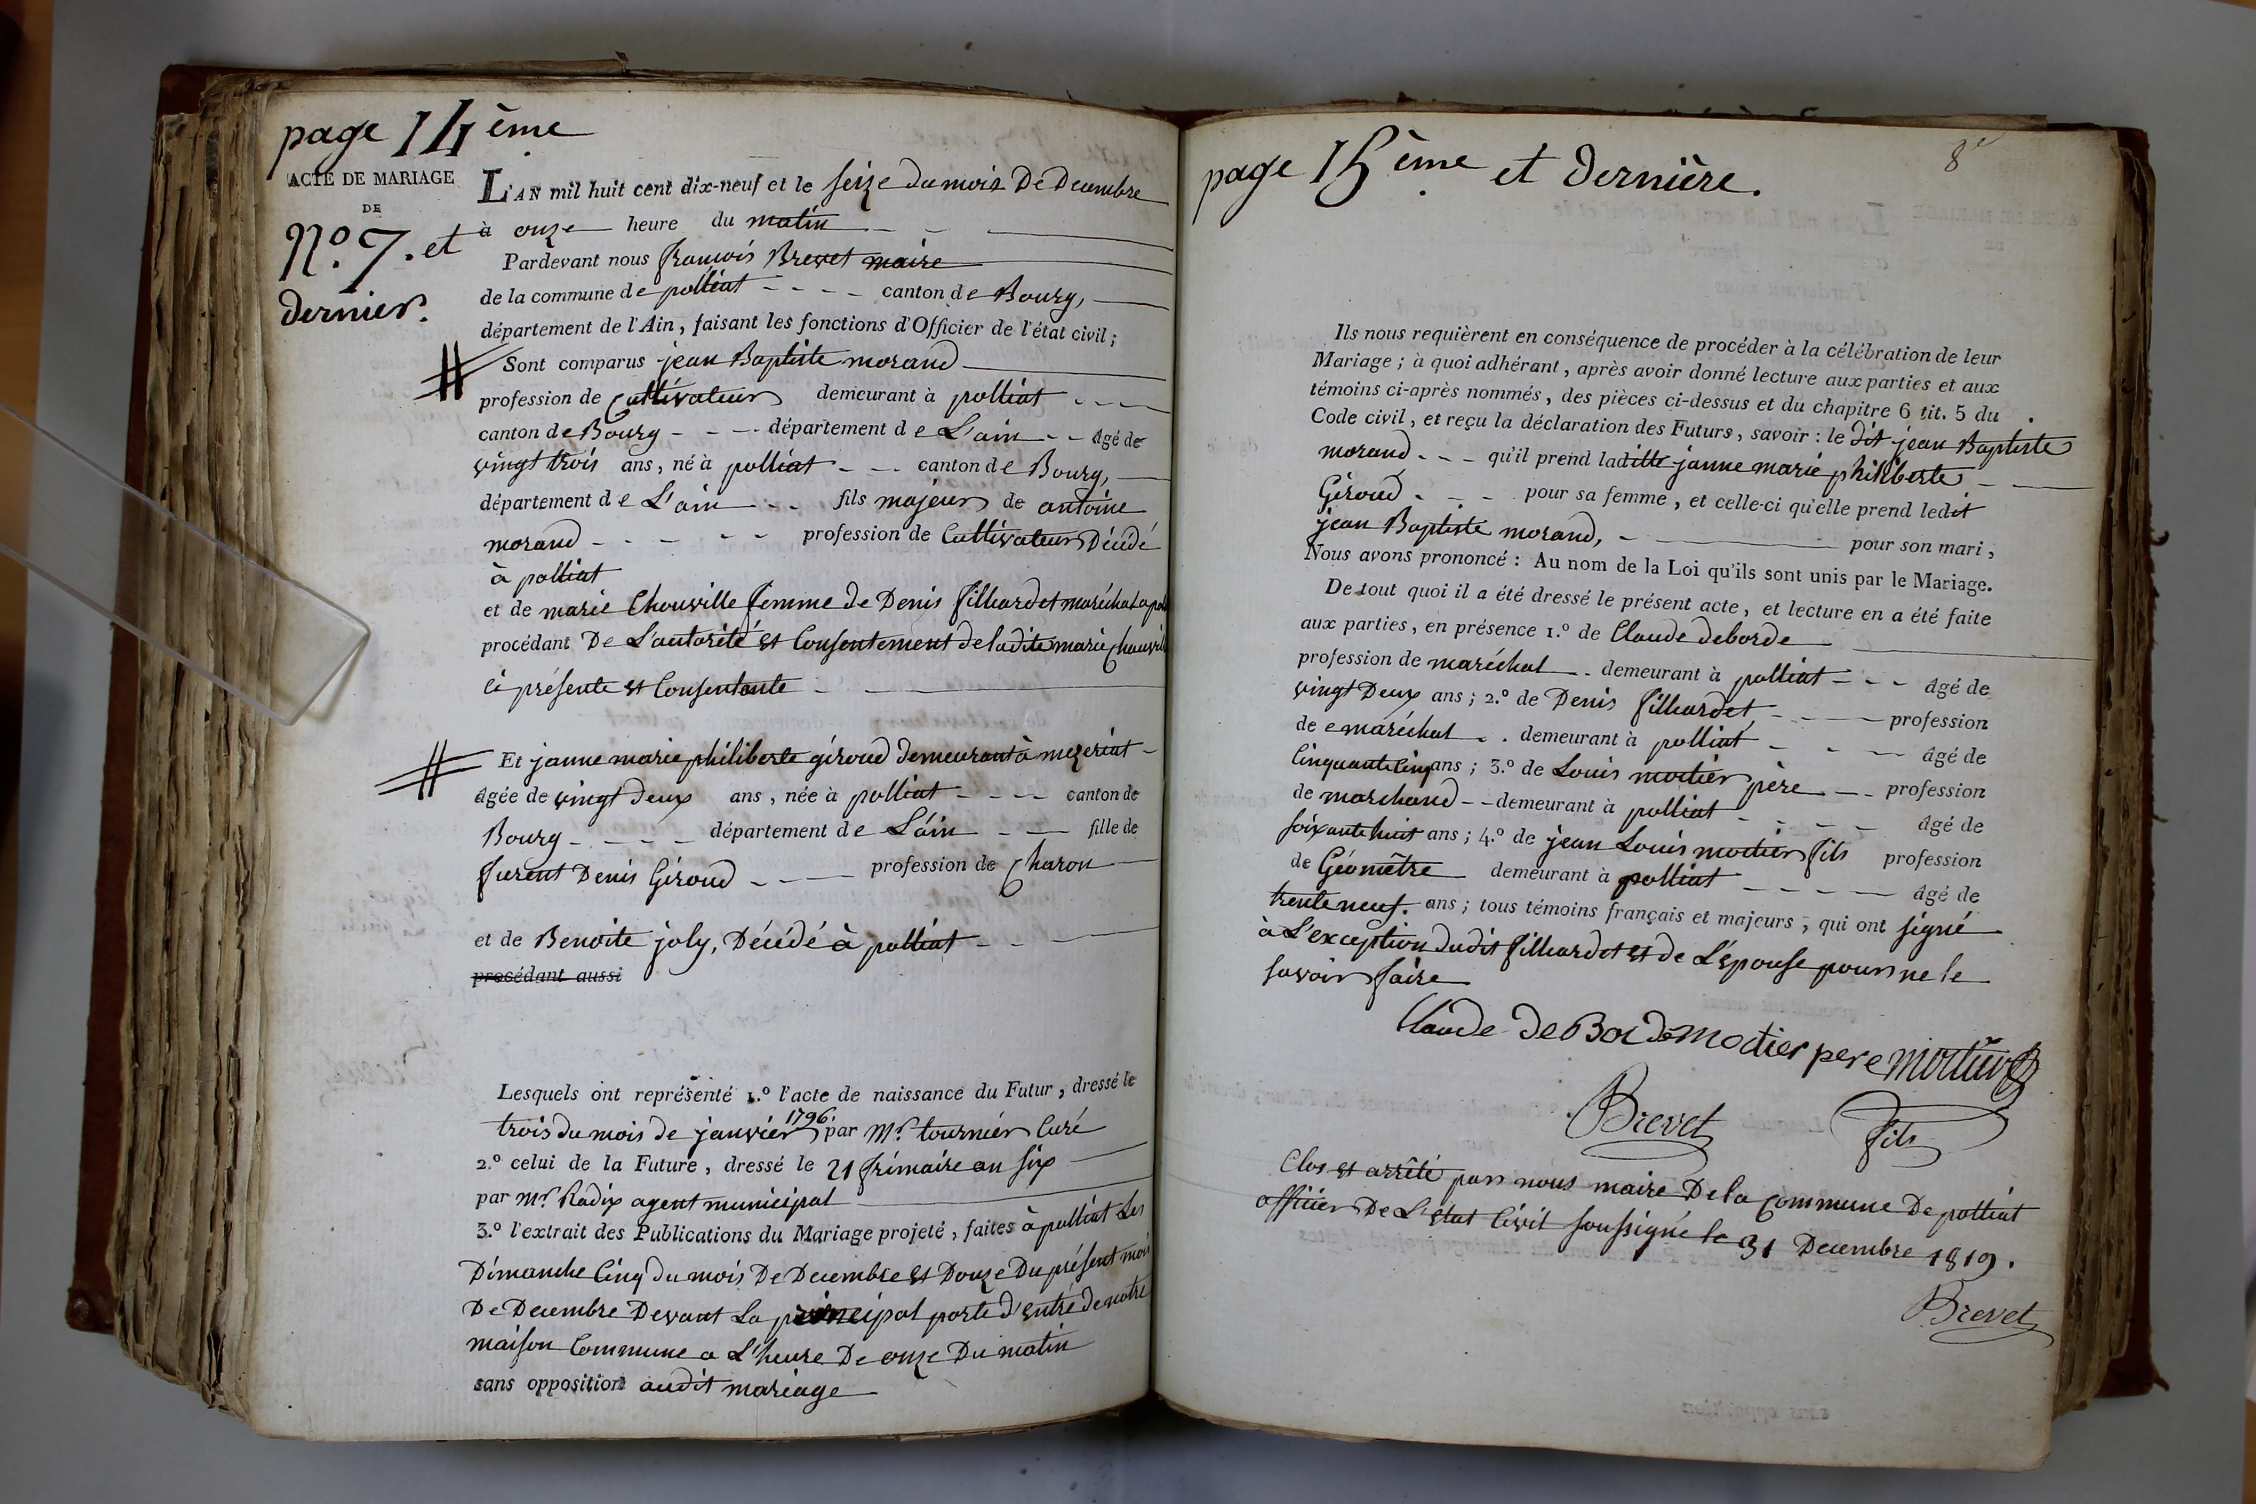 page 14 ème
ACTE DE MARIAGE
DE
N.º 7. et
dernier.
L'AN mil huit cent dix-neuf et le seize du mois De Decembre
à onze heure du matin
Pardevant nous françois Brevet maire
de la commune de polliat canton de Bourg,
département de l'Ain, faisant les fonctions d'Officier de l'état civil;
Sont comparus jean Baptiste morand
profession de Cultivateur demeurant à polliat
canton de Bourg département de L'ain âgé de
vingt trois ans, né à polliat canton de Bourg,
département de L'ain fils majeur de antoine
morand profession de Cultivateur Décédé
à polliat
et de marie Chouville femme de Denis filliardet maréchal a
procédant De L'autorité et Consentement de ladite marie
ci présente et Consentante
Et janne marie philiberte giroud demeurant à mezeriat
âgée de vingt deux ans, née à polliat canton de
Bourg département de L'ain fille de
furent Denis Giroud profession de Charon
et de Benoite joly, Décédé à polliat
procédant aussi
Lesquels ont représenté 1.º l'acte de naissance du Futur, dressé le
trois du mois de janvier 1796 par Mr. tournier Curé
2.º celui de la Future, dressé le 21 frimaire an six
par Mr. Radix agent municipal
3.º l'extrait des Publications du Mariage projeté, faites à polliat Les
Dimanche Cinq du mois De Decembre et Douze Du présent mois
De Decembre Devant La principal porte d'entré de notre
maison Commune a L'heure De onze Du matin
sans opposition audit mariage
page 15 ème et dernière.
8
Ils nous requièrent en conséquence de procéder à la célébration de leur
Mariage; à quoi adhérant, après avoir donné lecture aux parties et aux
témoins ci-après nommés, des pièces ci-dessus et du chapitre 6 tit. 5 du
Code civil, et reçu la déclaration des Futurs, savoir: le dit jean Baptiste
morand qu'il prend laditte janne marie philiberte
Giroud pour sa femme, et celle-ci qu'elle prend ledit
jean Baptiste morand, pour son mari,
Nous avons prononcé: Au nom de la Loi qu'ils sont unis par le Mariage.
De tout quoi il a été dressé le présent acte, et lecture en a été faite
aux parties, en présence 1.º de Claude deborde
profession de maréchal demeurant à polliat âgé de
vingt Deux ans; 2.º de Denis filliardet, profession
de maréchal demeurant à polliat âgé de
Cinquante Cinq ans; 3.º de Louis mortier père profession
de marchand demeurant à polliat âgé de
soixante huit ans; 4.º de jean Louis mortier fils profession
de Géomêtre demeurant à polliat âgé de
trente neuf. ans; tous témoins français et majeurs, qui ont signé
à L'exception dudit filliardet et de L'épouse pour ne le
savoir faire
Claude de Borde Motier pere Mortier
Brevet fils
Clos et arrêté par nous maire De la Commune De polliat
officier De L'état Civil soussigné le 31 Decembre 1819.
Brevet